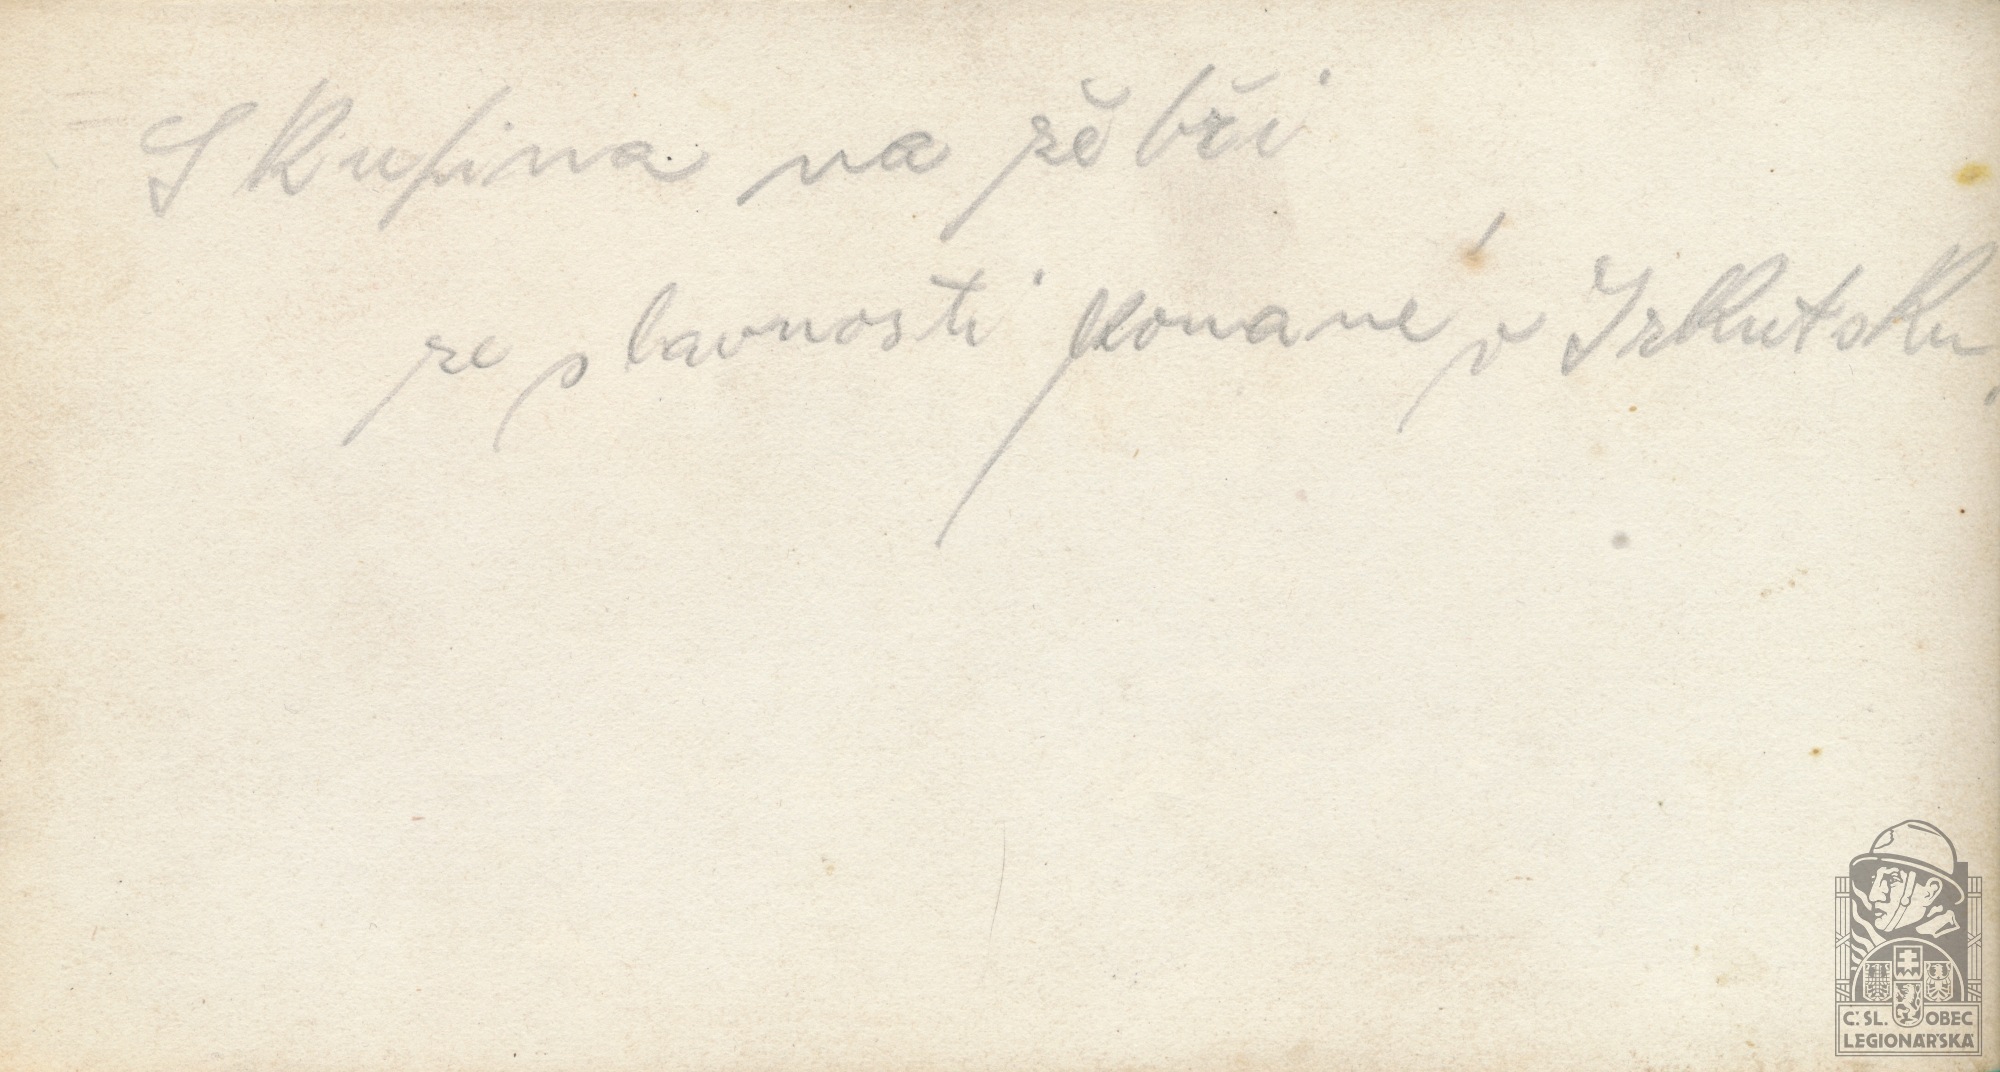 Skupina na žebři
ze slavnosti konané v Irkutsku.
Č.SL. OBEC
LEGIONÁŘSKÁ